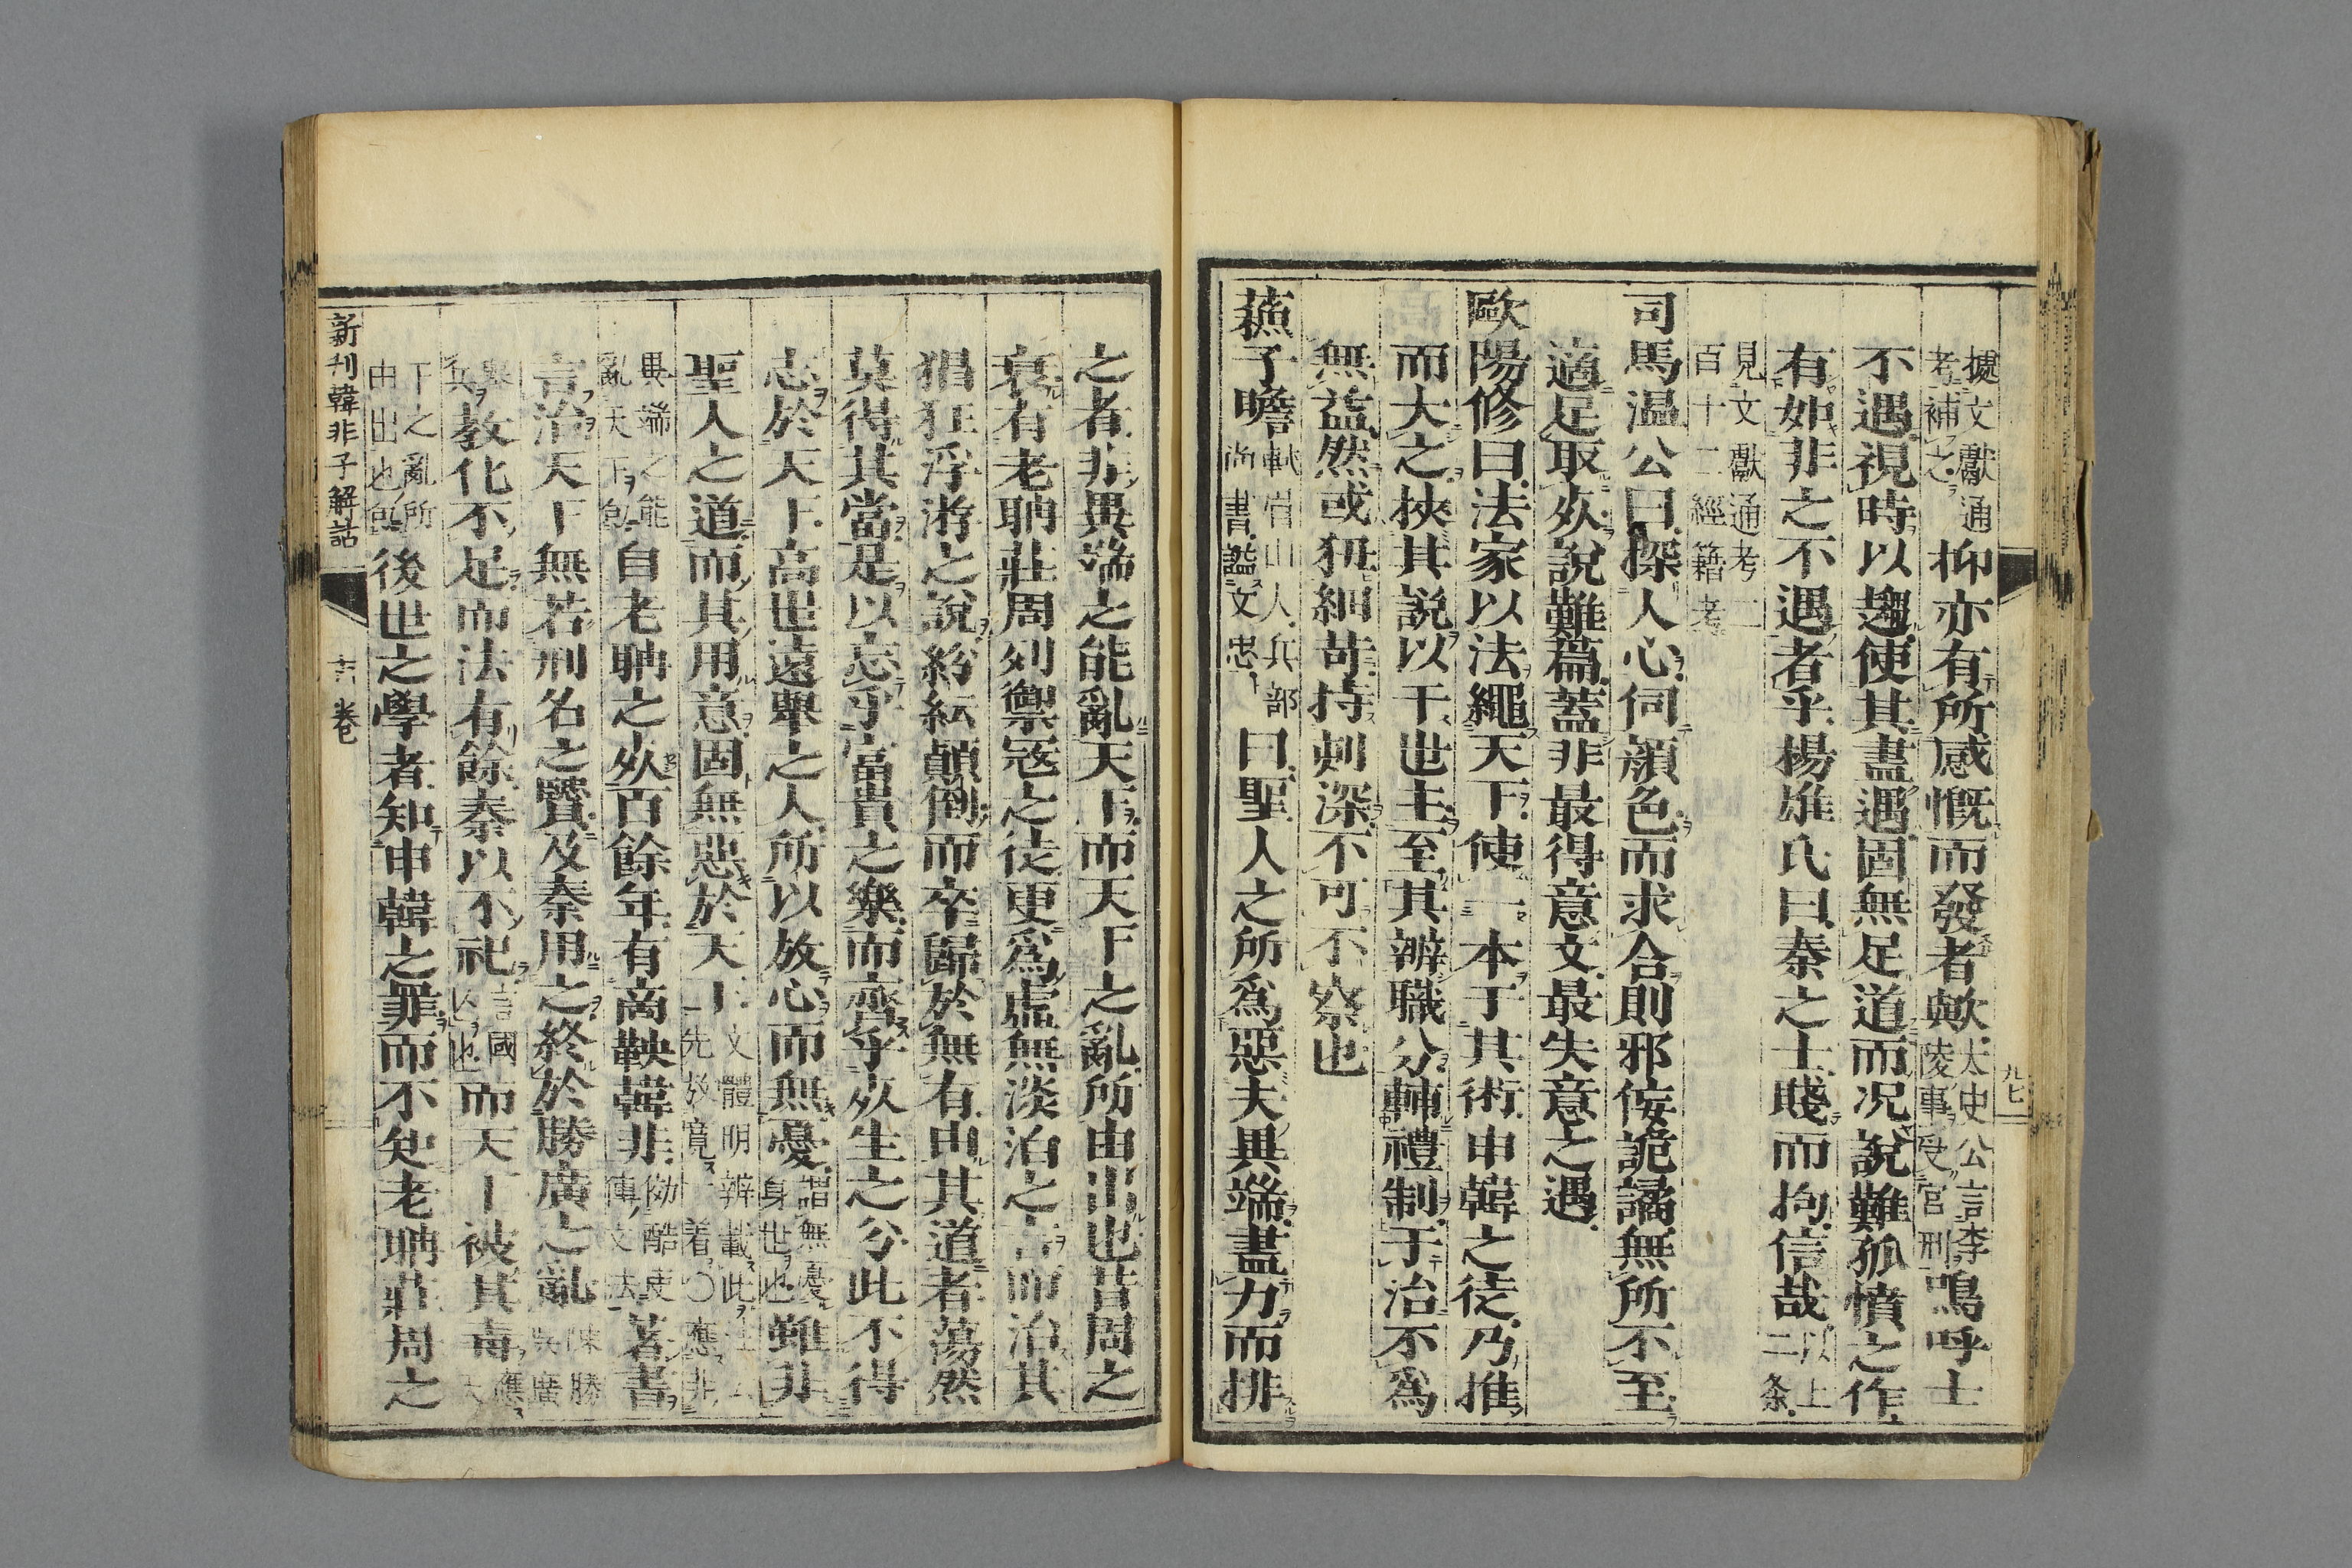 據文獻通考補之抑亦有所感慨而發者歟太史公言李陵事受官刑嗚呼士
不遇視時以趨使其盡遇固無足道而况說難孤憤之作
有如非之不遇者乎楊雄氏曰秦之士賤而拘信哉以上二条
見文獻通考二百十二經籍考
司馬温公曰探人心伺顔色而求合則邪佞詭譎無所不至
適足取死說難篇蓋非最得意文最失意之遇
歐陽修曰法家以法繩天下使一本于其術申韓之徒乃推
而大之挾其說以干世主至其辨職分輔禮制于治不爲
無益然或狃細苛持刻深不可不察也
蘓子瞻軾眉山人兵部尚書謚文忠曰聖人之所爲惡夫異端盡力而排
之者非異端之能亂天下而天下之亂所由出也昔周之
衰有老聃莊周列禦冦之徒更爲虛無淡泊之言而治其
猖狂浮游之說紛紜顛倒而卒歸於無有由其道者蕩然
莫得其當是以忘乎富貴之樂而齊乎死生之分此不得
志於天下高世遠舉之人所以放心而無憂謂無憂身世也雖非
聖人之道而其用意固無惡於天下文體明辨載此一先放寬一着〇應非
異端之能亂天下句自老聃之死百餘年有商鞅韓非著書
言治天下無若刑名之賢及秦用之終於勝廣之亂陳勝吳廣
教化不足而法有餘秦以不祀言國以也而天下被其毒應天
下之亂所由出也句後世之學者知申韓之罪而不知老聃莊周之
新刊韓非子解詁 首卷